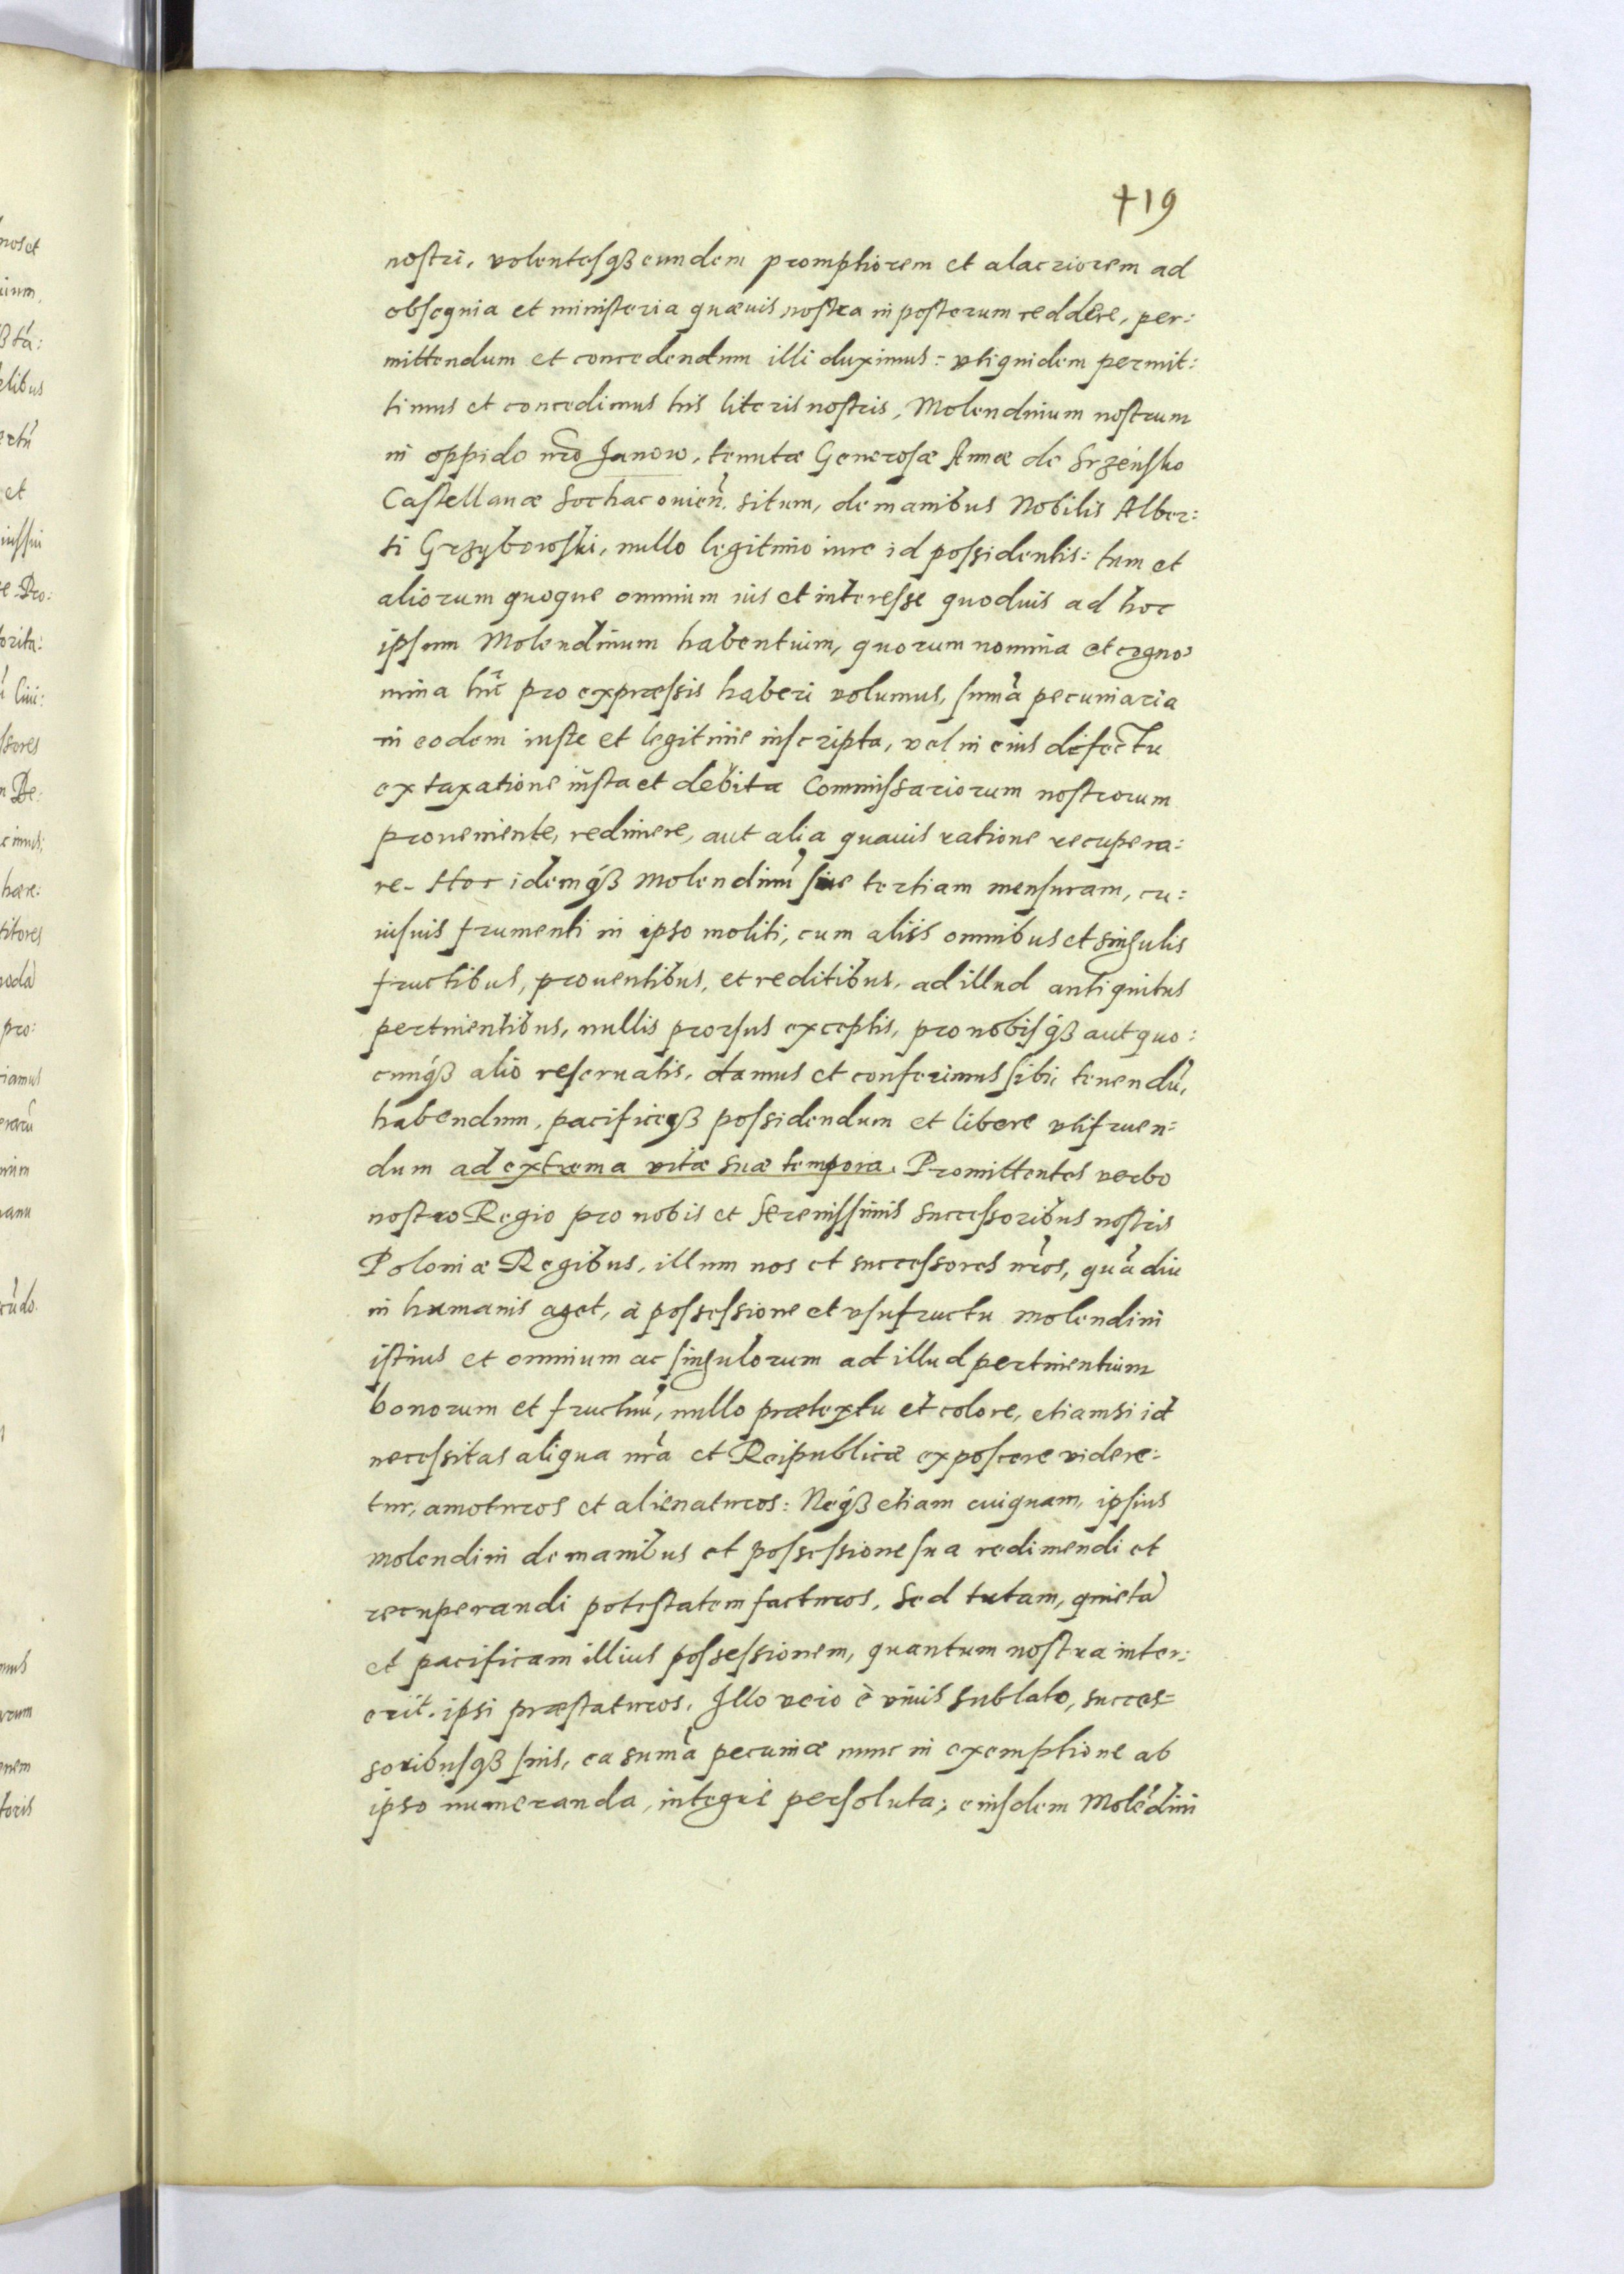 419
nostri, volentesqȝ eundem promptiorem et alacriorem ad
obsequia et ministeria quævis nostra in posterum reddere, per:
mittendum et concedendum illi duximus: vti quidem permit:
timus et concedimus his literis nostris, Molendinum nostrum
in oppido nr̃o Janow, tenutæ Generosæ Annæ de Srzensko
Castellanæ Sochaczouien̄. situm, de manibus Nobilis Alber:
ti Grzybowski, nullo legitimo iure id possidentis: tum et
aliorum quoque omnium ius et interesse quoduis ad hoc
ipsum Molendinum habentium, quorum nomina et cogno:
mina hic̃ pro expressis haberi volumus, sum̃a pecuniaria
in eodem iuste et legitime inscripta, vel in eius defectu
ex taxatione iusta et debita Commissariorum nostrorum
proueniente, redimere, aut alia quauis ratione recupera:
re. Hoc idemqȝ Molendinũ siue tertiam mensuram, cu:
iusuis frumenti in ipso moliti, cum aliis omnibus et singulis
fructibus, prouentibus, et reditibus, ad illud antiquitus
pertinentibus, nullis prorsus exceptis, pro nobisqȝ aut quo:
cunqȝ alio reseruatis, damus et conferimus sibi, tenendũ,
habendum, pacificeqȝ possidendum et libere vtifruen=
dum ad extrema vitæ suæ tempora. Promittentes verbo
nostro Regio pro nobis et Serenissimis Successoribus nostris
Poloniæ Regibus, illum nos et successores nr̃os, quãdiu
in humanis aget, à possessione et vsufructu Molendini
istius et omnium ac singulorum ad illud pertinentium
bonorum et fructuũ, nullo prætextu et colore, etiamsi id
necessitas aliqua nr̃a et Reipublicæ exposcere videre:
tur, amoturos et alienaturos: Neqȝ etiam cuiquam, ipsius
Molendini de manibus et possessione sua redimendi et
recuperandi potestatem facturos, Sed tutam, quietã
et pacificam illius possessionem, quantum nostra inter:
erit. ipsi præstaturos. Illo vero è viuis sublato, succes=
soribusqȝ suis, ea sum̃a pecuniæ nunc in exemptione ab
ipso numeranda, integre persoluta; eiusdem Molẽdini